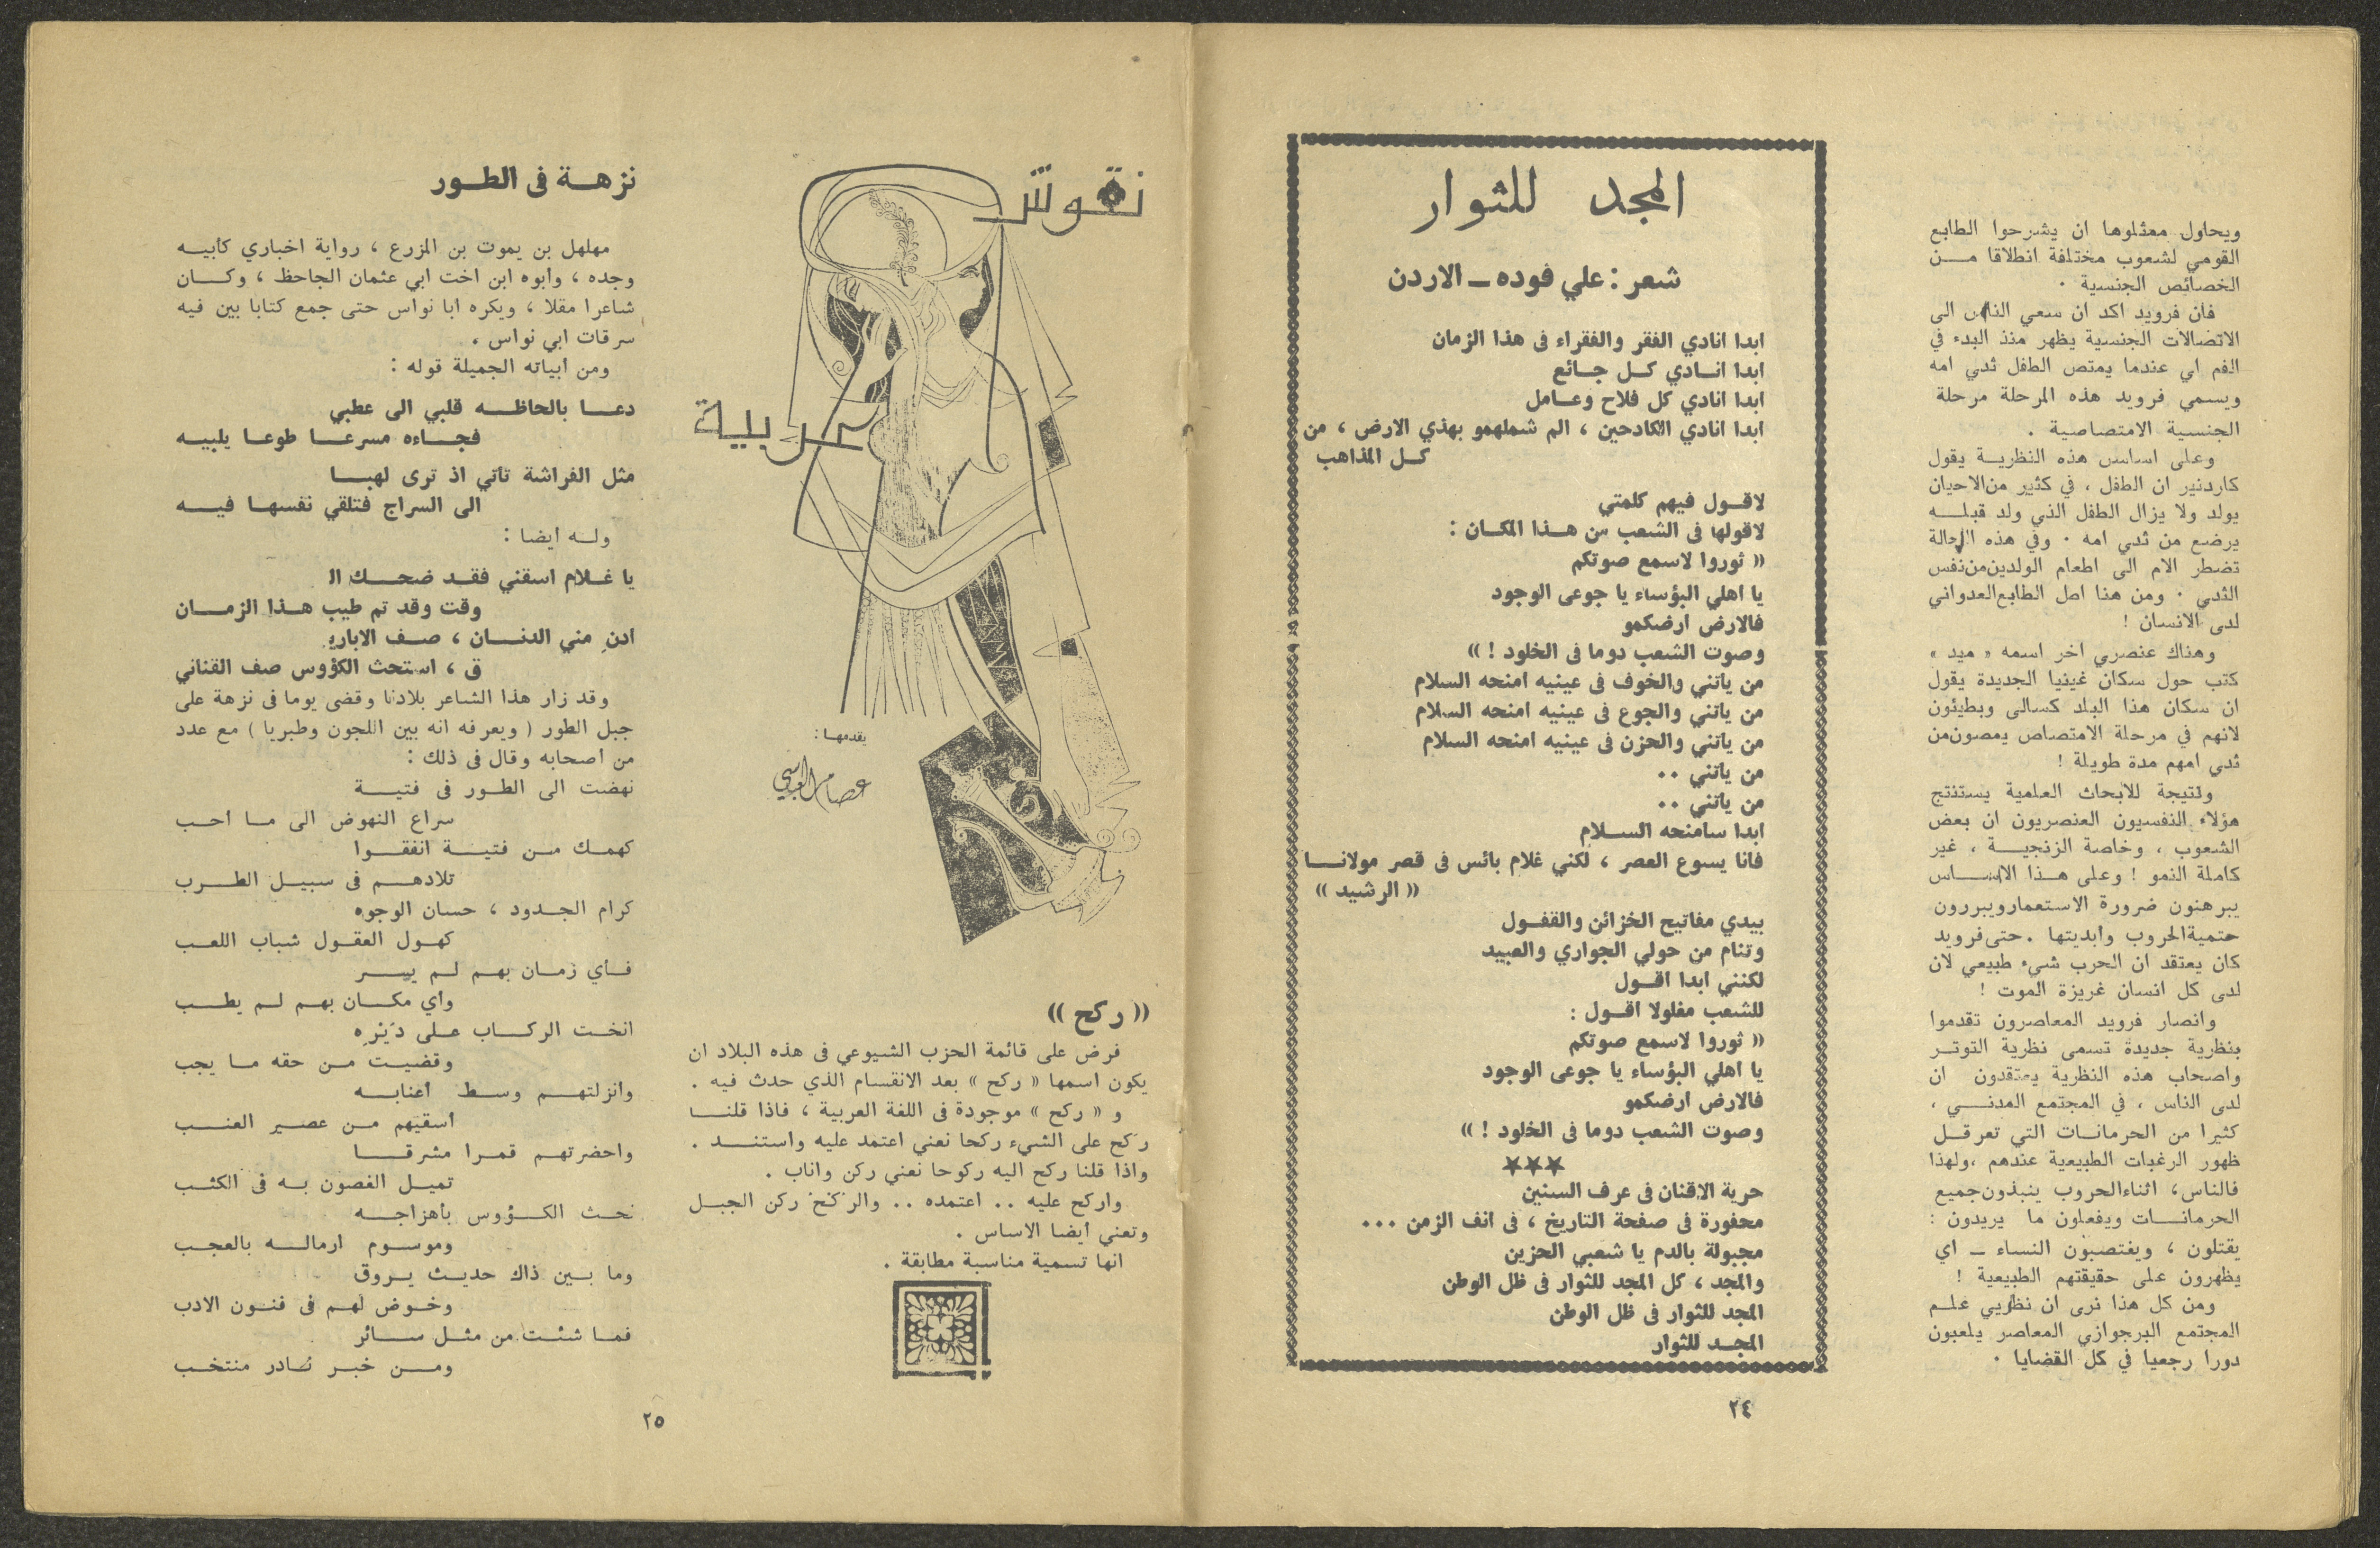 ويحاول ممثلوها ان يشرحوا الطابع
القومي لشعوب مختلفة انطلاقا مــن
الخصائص الجنسية .
فان فرويد اكد ان سعي الناس الى
الاتصالات الجنسية يظهر منذ البدء في
الفم اي عندما يمتص الطفل ثدي امه
ويسمي فرويد هذه المرحلة مرحلة
الجنسية الامتصاصية .
وعلى اساس هذه النظريــة يقول
كاردنير ان الطفل ، في كثير من الاحيان
يولد ولا يزال الطفل الذي ولد قبلــه
يرضع من ثدي امه . وفي هذه الحالة
تضطر الام الى اطعام الولدين من نفس
الثدي . ومن هنا اصل الطابع العدواني
لدى الانسان !
وهناك عنصري اخر اسمه « ميد »
كتب حول سكان غينيا الجديدة يقول
ان سكان هذا البلد كسالى وبطيئون
لانهم في مرحلة الامتصاص يمصون من
ثدي امهم مدة طويلة !
ونتيجة للابحاث العلمية يستنتج
هؤلاء النفسيون العنصريون ان بعض
الشعوب ، وخاصة الزنجيــة ، غير
كاملة النمو ! وعلى هــذا الاســاس
يبرهنون ضرورة الاستعمار ويبررون
حتمية الحروب وابديتها . حتى فرويد
كان يعتقد ان الحرب شيء طبيعي لان
لدى كل انسان غريزة الموت !
وانصار فرويد المعاصرون تقدموا
بنظرية جديدة تسمى نظرية التوتــر
واصحاب هذه النظرية يعتقدون ان
لدى الناس ، في المجتمع المدنــي ،
كثيرا من الحرمانــات التي تعرقــل
ظهور الرغبات الطبيعية عندهم ، ولهذا
فالناس ، اثناء الحروب ينبذون جميع
الحرمانــات ويفعلون ما يريدون :
يقتلون ، ويغتصبون النساء ــ اي
يظهرون على حقيقتهم الطبيعية !
ومن كل هذا نرى ان نظريي علــم
المجتمع البرجوازي المعاصر يلعبون
دورا رجعيا في كل القضايا .
المجد للثوار
شعر : علي فوده ــ الاردن
ابدا انادي الفقر والفقراء فى هذا الزمان
ابدا انــادي كــل جــائع
ابدا انادي كل فلاح وعــامل
ابدا انادي الكادحين ، الم شملهمو بهذي الارض ، من
كــل المذاهب
لاقــول فيهم كلمتي
لاقولها فى الشعب من هــذا المكــان :
« ثوروا لاسمع صوتكم
يا اهلي البؤساء يا جوعى الوجود
فالارض ارضكمو
وصوت الشعب دوما فى الخلود ! »
من ياتني والخوف فى عينيه امنحه السلام
من ياتني والجوع فى عينيه امنحه السلام
من ياتني والحزن فى عينيه امنحه السلام
من ياتني ..
من ياتني ..
ابدا سامنحه الســلام
فانا يسوع العصر ، لكني غلام بائس فى قصر مولانــا
« الرشيد »
بيدي مفاتيح الخزائن والقفــول
وتنام من حولي الجواري والعبيد
لكنني ابدا اقــول
للشعب مغلولا اقــول :
« ثوروا لاسمع صوتكم
يا اهلي البؤساء يا جوعى الوجود
فالارض ارضكمو
وصوت الشعب دوما فى الخلود ! »
★★★
حرية الاقنان فى عرف السنين
محفورة فى صفحة التاريخ ، فى انف الزمن ...
مجبولة بالدم يا شعبي الحزين
والمجد ، كل المجد للثوار فى ظل الوطن
المجد للثوار فى ظل الوطن
المجــد للثوار
٢٤
نقوش
عربية
يقدمهــا :
عصام العباسي
« ركح »
فرض على قائمة الحزب الشيوعي فى هذه البلاد ان
يكون اسمها « ركح » بعد الانقسام الذي حدث فيه .
و « ركح » موجودة فى اللغة العربية ، فاذا قلنــا
ركح على الشيء ركحا نعني اعتمد عليه واستنــد .
واذا قلنا ركح اليه ركوحا نعني ركن واناب .
واركح عليه .. اعتمده .. والركح ركن الجبــل
وتعني ايضا الاساس .
انها تسمية مناسبة مطابقة .
نزهــة فى الطــور
مهلهل بن يموت بن المزرع ، رواية اخباري كابيــه
وجده ، وابوه ابن اخت ابي عثمان الجاحظ ، وكــان
شاعرا مقلا ، ويكره ابا نواس حتى جمع كتابا بين فيه
سرقات ابي نواس .
ومن ابياته الجميلة قوله :
دعــا بالحاظــه قلبي الى عطبي
فجــاءه مسرعــا طوعــا يلبيــه
مثل الفراشة تاتي اذ ترى لهبــا
الى السراج فتلقي نفسهــا فيــه
ولــه ايضا :
يا غــلام اسقني فقــد ضحــك الـ
وقت وقد تم طيب هــذا الزمــان
ادن مني الدنــان ، صــف الاباريـ
ق ، استحث الكؤوس صف القناني
وقد زار هذا الشاعر بلادنا وقضى يوما فى نزهة على
جبل الطور ( ويعرفه انه بين اللجون وطبريا ) مع عدد
من اصحابه وقال فى ذلك :
نهضت الى الطــور فى فتيــة
سراع النهوض الى مــا احــب
كهمــك مــن فتيــة انفقــوا
تلادهــم فى سبيــل الطــرب
كرام الجــدود ، حسان الوجوه
كهــول العقــول شباب اللعــب
فــأي زمــان بهــم لــم يســر
وأي مكــان بهــم لــم يطــب
انخــت الركــاب عــلى دَيْرِه
وقضيــت مــن حقه مــا يجب
وانزلتهــم وســط أعنابــه
أسقيَهم مــن عصيــر العنــب
واحضرتهــم قمــرا مشرقــا
تميــل الغصون بــه فى الكثــب
نحــث الكــؤوس بأهزاجــه
وموســوم ارمالــه بالعجــب
وما بــين ذاك حديــث يــروق
وخــوض لهــم فى فنــون الادب
فمــا شئــت من مثــل ســائر
ومــن خبــر نــادر منتخــب
٢٥